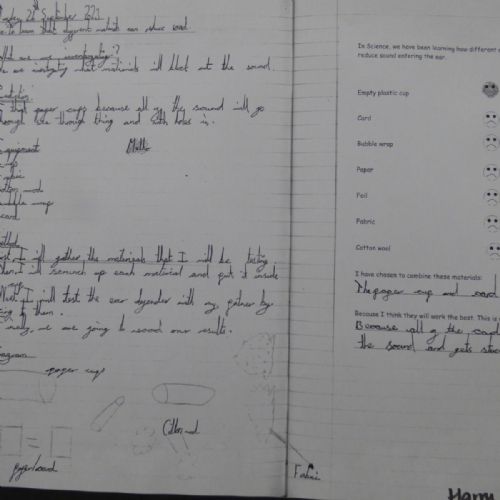 September
to learn that different materials can reduce sound.
are we investigating?
we are investigating what materials will block out the sound.
that paper cups because all of the sound will go
through thing and with holes in.
equipment
cup
fabric
cotton wool
bubble wrap
card
Method
I will gather the materials that I will be testing.
I will scrunch up each material and put it inside
cup
I will test the ear defender with my partner by
to them.
we are going to record our results.
Diagram
paper cup
Cotton wool
Fabric
In Science, we have been learning how different
reduce sound entering the ear.
Empty plastic cup
Card
Bubble wrap
Paper
Foil
Fabric
Cotton wool
I have chosen to combine these materials:
The paper cup and card
Because I think they will work the best. This is
Because all of the card
the sound and gets
Harry